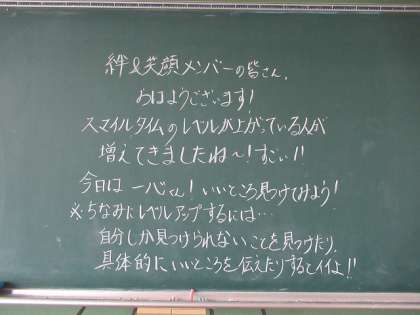 絆&笑顔メンバーの皆さん、
おはようございます!
スマイルタイムのレベルが上がっている人が
増えてきましたね～!すごい!!
今日は 一心くん!いいところ見つけてみよう!
※ちなみにレベルアップするには…
自分しか見つけられないことを見つけたり、
具体的にいいところを伝えたりするとイイよ!!